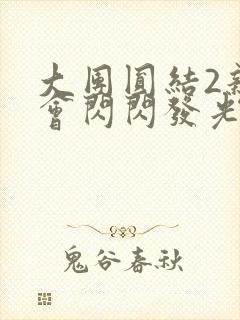 大團圓結2新
會閃閃發光
鬼谷春秋